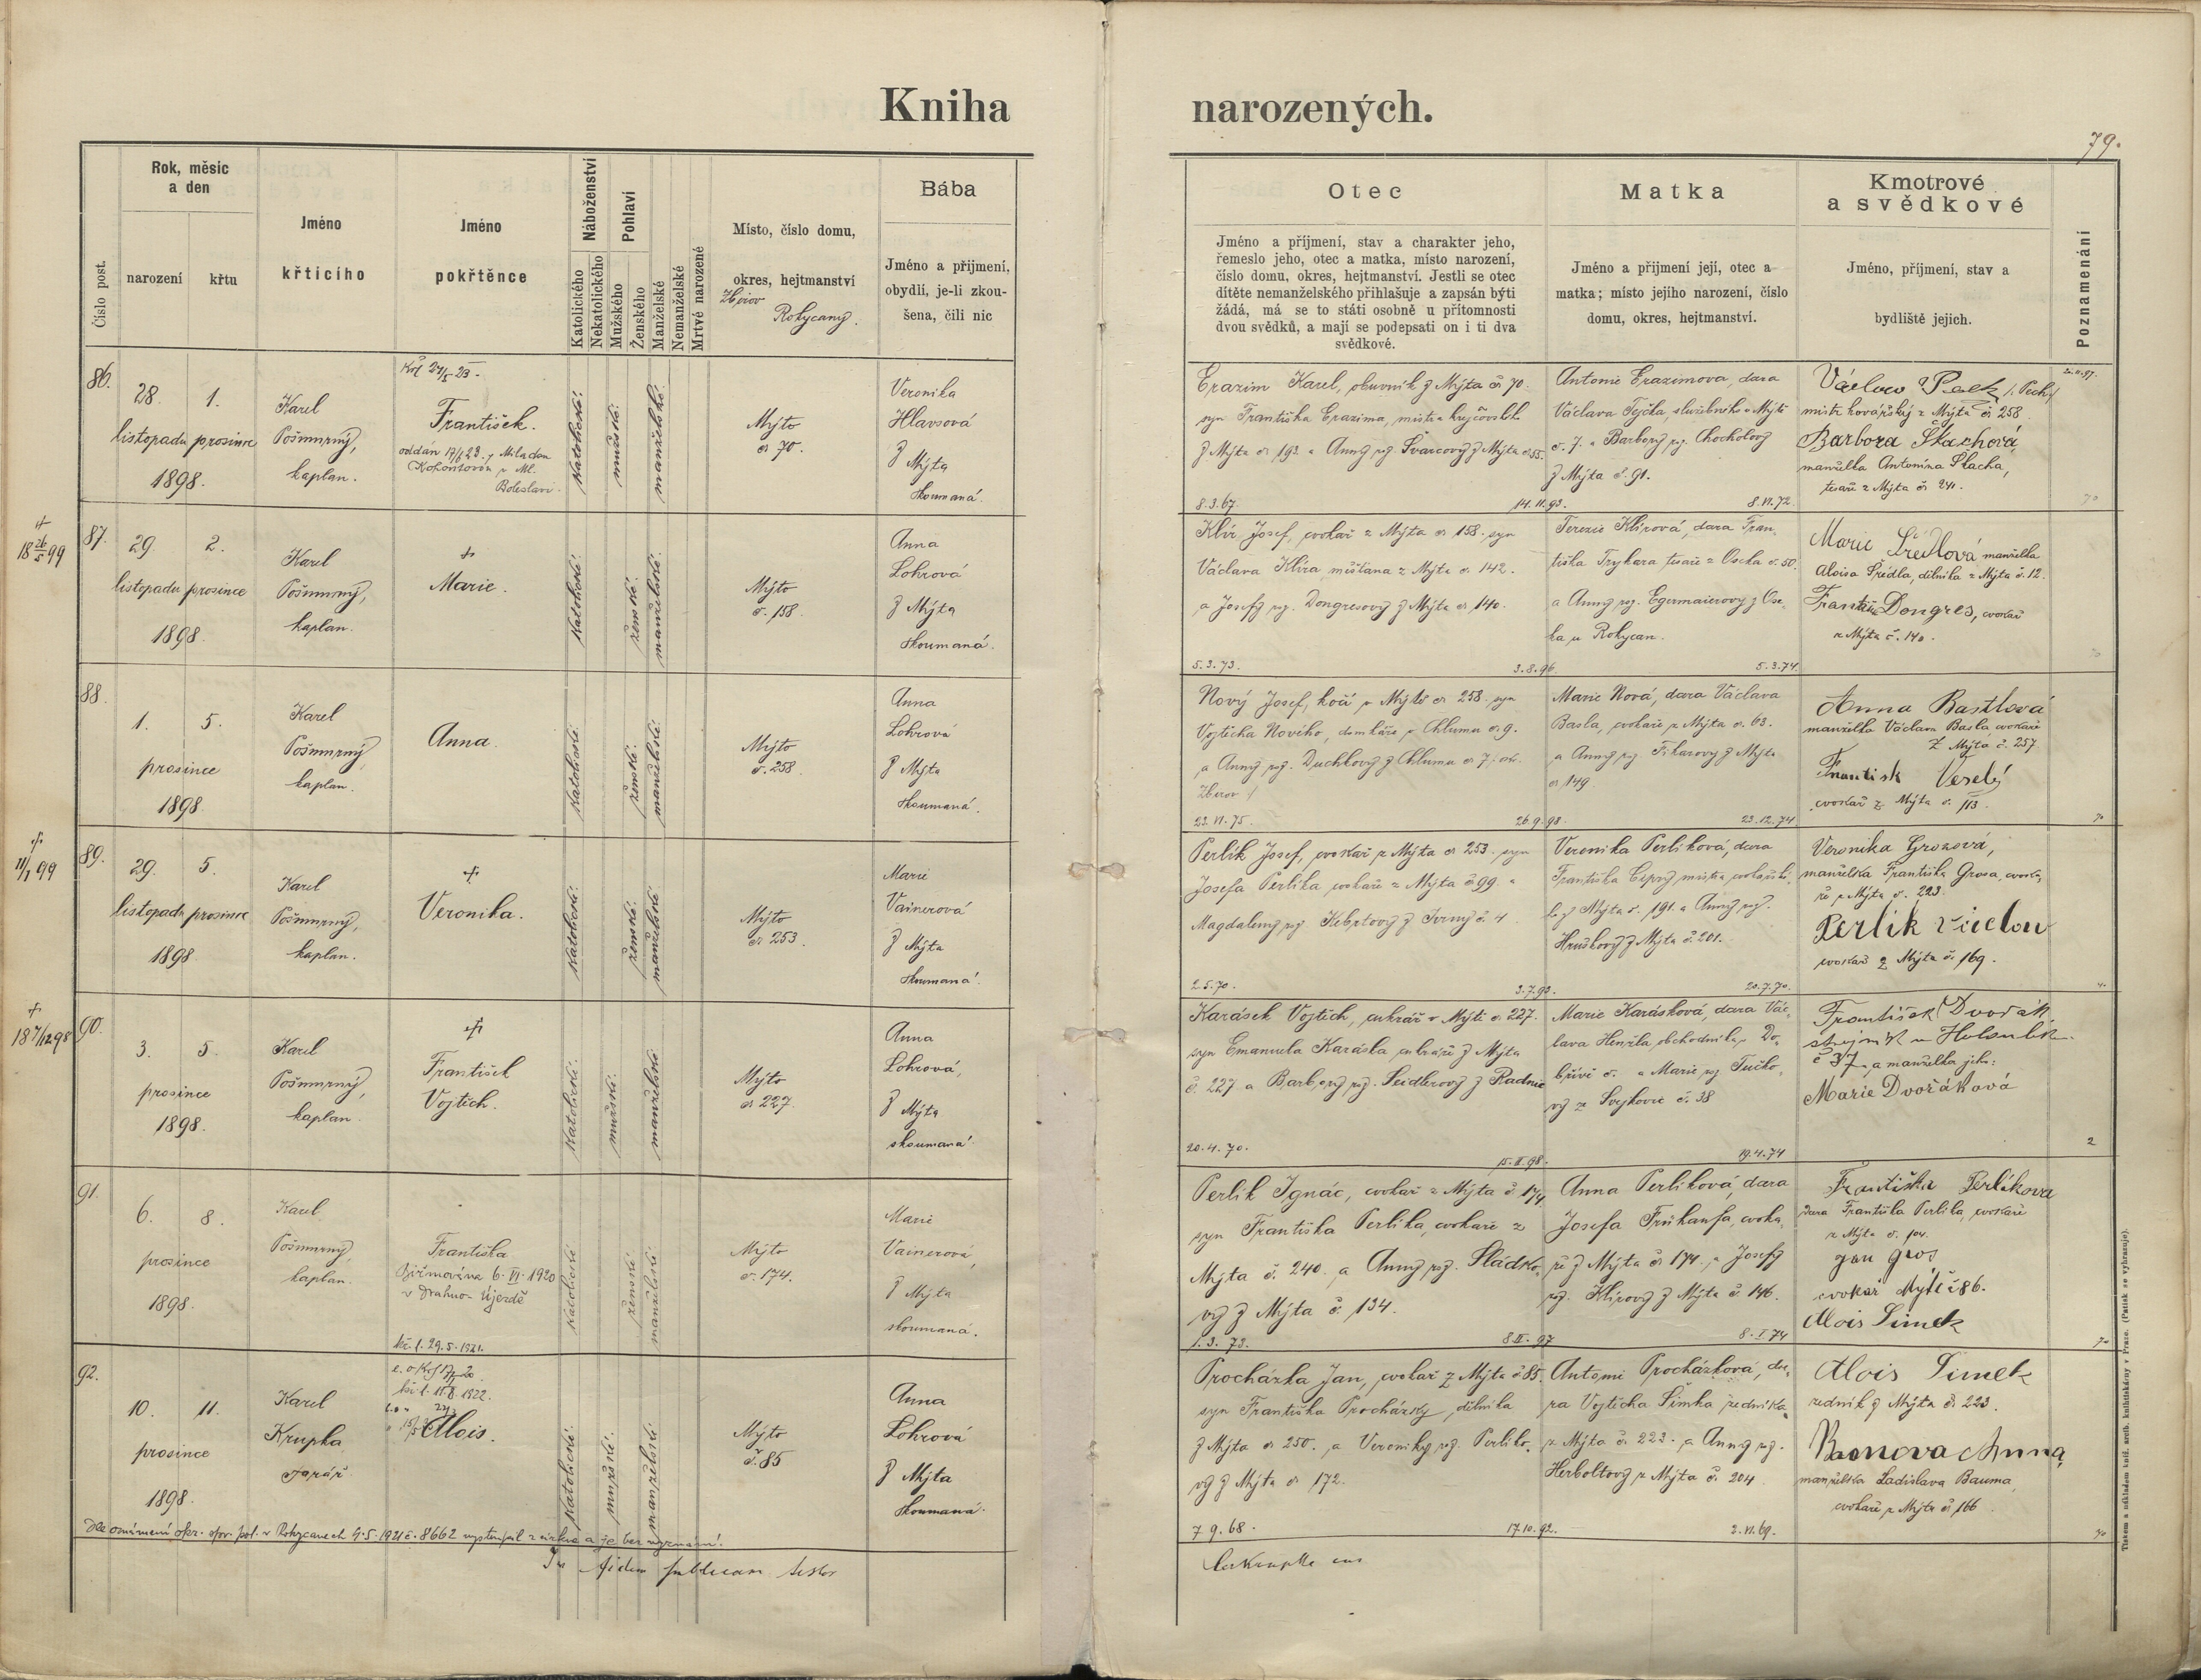 Kniha narozených.
79.
Číslo post.
Rok, měsíc
a den
narození
křtu
Jméno
křticího
Jméno
pokřtěnce
Náboženství
Katolického
Nekatolického
Pohlaví
Mužského
Ženského
Manželské
Nemanželské
Mrtvé narozené
Místo, číslo domu,
okres, hejtmanství
Zbirov
Rokycany.
Bába
Jméno a přijmení,
obydlí, je-li zkou-
šena, čili nic
Otec
Jméno a příjmení, stav a charakter jeho,
řemeslo jeho, otec a matka, místo narození,
číslo domu, okres, hejtmanství. Jestli se otec
dítěte nemanželského přihlašuje a zapsán býti
žádá, má se to státi osobně u přítomnosti
dvou svědků, a mají se podepsati on i ti dva
svědkové.
Matka
Jméno a přijmení její, otec a
matka; místo jejího narození, číslo
domu, okres, hejtmanství.
Kmotrové
a svědkové
Jméno, příjmení, stav a
bydliště jejich.
Poznamenání
86.
28. 1.
listopadu prosince
1898.
Karel
Pošmurný,
kaplan.
František.
oddán 17/6 23. s Miladou
Kohoutovou v Ml.
Boleslavi.
katolické.
mužské.
manželské.
Mýto
č. 70.
Veronika
Hlavsová
z Mýta
zkoumaná.
Erazim Karel, obuvník z Mýta č. 70.
syn Františka Erazima, mistra krejčovského
z Mýta č. 192 a Anny roz. Švarcovy z Mýta č. 55.
8.3.67. 14.11.93.
Antonie Erazimova, dcera
Václava Tejčka, služebníka v Mýtě
č. 7. a Barbory roz. Chocholovy
z Mýta č. 91.
8.VI.72.
mistr kovářský z Mýta č. 258.
Barbora Šlachová,
manželka Antonína Šlacha,
tesaře z Mýta č. 241.
87.
18 26/5 99
29. 2.
listopadu prosince
1898.
Karel
Pošmurný,
kaplan.
Marie.
katolické.
ženské.
manželské.
Mýto
č. 158.
Anna
Lohrová
z Mýta
zkoumaná.
Klír Josef, cvokař z Mýta č. 158. syn
Václava Klíra, měšťana z Mýta č. 142.
a Josefy roz. Dongresovy z Mýta č. 140.
5.3.73. 3.8.96.
Terezie Klírová, dcera Fran-
tiška Trykara tesaře z Oseka č. 50.
a Anny roz. Egermaierovy z Ose-
ka u Rokycan.
5.3.74.
Marie Šrédlová manželka
Aloisa Šrédla, dělníka z Mýta č. 12.
Františ. Dongres, cvokař
z Mýta č. 140.
88.
1. 5.
prosince
1898.
Karel
Pošmurný,
kaplan.
Anna.
katolické.
ženské.
manželské.
Mýto
č. 258.
Anna
Lohrová
z Mýta
zkoumaná.
Nový Josef, kovář v Mýtě č. 258. syn
Vojtěcha Nového, domkáře z Chlumu č. 9.
a Anny roz. Duchkovy z Chlumu č. 7. ok.
Zberov
23.VI.75. 26.9.98.
Marie Nová, dcera Václava
Basla, cvokaře z Mýta č. 63.
a Anny roz. Fikarovy z Mýta
č. 149.
23.12.74.
Anna Bastlová
manželka Václava Basla, cvokaře
z Mýta č. 257.
Frantisk Veselý
cvokař z Mýta č. 113.
89.
11/1 99
29. 5.
listopadu prosince
1898.
Karel
Pošmurný,
kaplan.
Veronika.
katolické.
ženské.
manželské.
Mýto
č. 253.
Marie
Vainerová
z Mýta
zkoumaná.
Perlík Josef, cvokař z Mýta č. 253. syn
Josefa Perlíka cvokaře z Mýta č. 99. a
Magdaleny roz. Kebrtovy z Ivrny č. 4
2.5.70. 3.7.93.
Veronika Perlíková, dcera
z Mýta č. 191. a Anny roz.
Hruškovy z Mýta č. 201.
20.7.70.
Veronika Grosová,
manželka Františka Grosa, cvoka-
ře z Mýta č. 223.
Perlík
cvokař z Mýta č. 169.
90.
18 7/12 98
3. 5.
prosince
1898.
Karel
Pošmurný,
kaplan.
František
Vojtěch.
katolické.
mužské.
manželské.
Mýto
č. 227.
Anna
Lohrová,
z Mýta
zkoumaná.
Karásek Vojtěch, cukrář v Mýtě č. 227.
syn Emanuela Karáska cukráře z Mýta
č. 227 a Barbory roz. Seidlerovy z Radnic
20.4.70. 15.II.98.
Marie Karásková, dcera Vác-
lava Henžla, obchodníka v Do-
břívě č. a Marie roz. Tučko-
vy ze Svojkovic č. 38
19.4.74
František Dvořák,
strojník v Holoubk.
č. 37, a manželka jeho:
Marie Dvořáková
2
91.
6. 8.
prosince
1898.
Karel
Pošmurný,
kaplan.
Františka
Biřmována 6. VI. 1920
v Drahno-Újezdě
katolické
ženské.
manželské.
Mýto
č. 174.
Marie
Vainerová,
z Mýta
zkoumaná.
Perlík Ignác, cvokař z Mýta č. 174,
syn Františka Perlíka, cvokaře z
Mýta č. 240. a Anny roz. Sládko-
vy z Mýta č. 134.
1.3.73. 8.II.97
Anna Perlíková, dcera
Josefa Frühaufa, cvoka-
ře z Mýta č. 174. a Josefy
roz. Klírovy z Mýta č. 146.
8.I.74
Františka Perlíkova
dcera Františka Perlíka, cvokaře
z Mýta č. 104.
Jan Gros
cvokař Mýtě č 86.
Alois Šimek
92.
10. 11.
prosince
1898.
Karel
Krupka,
farář.
Alois.
katolické.
mužské.
manželské.
Mýto
č. 85
Anna
Lohrová
z Mýta
zkoumaná.
Procházka Jan, cvokař z Mýta č. 85.
syn Františka Procházky, dělníka
z Mýta č. 250. a Veroniky roz. Perlíko-
vy z Mýta č. 172.
7 9.68. 17.10.92.
Antonie Procházková, dce-
ra Vojtěcha Šimka, řezníka
z Mýta č. 223. a Anny roz.
Herboltovy z Mýta č. 204.
2.VI.69.
Alois Šimek
řezník z Mýta č. 223.
Baumova Anna
manželka Ladislava Bauma,
cvokaře z Mýta č. 166
Dle oznámení okr. spr. pol. v Rokycanech 4.5.1921 č. 8662 vystoupil z církve a je bez vyznání!
In fidem publicam testor
Tiskem a nákladem kníž. arcib. knihtiskárny v Praze. (Patisk se vyhrazuje).